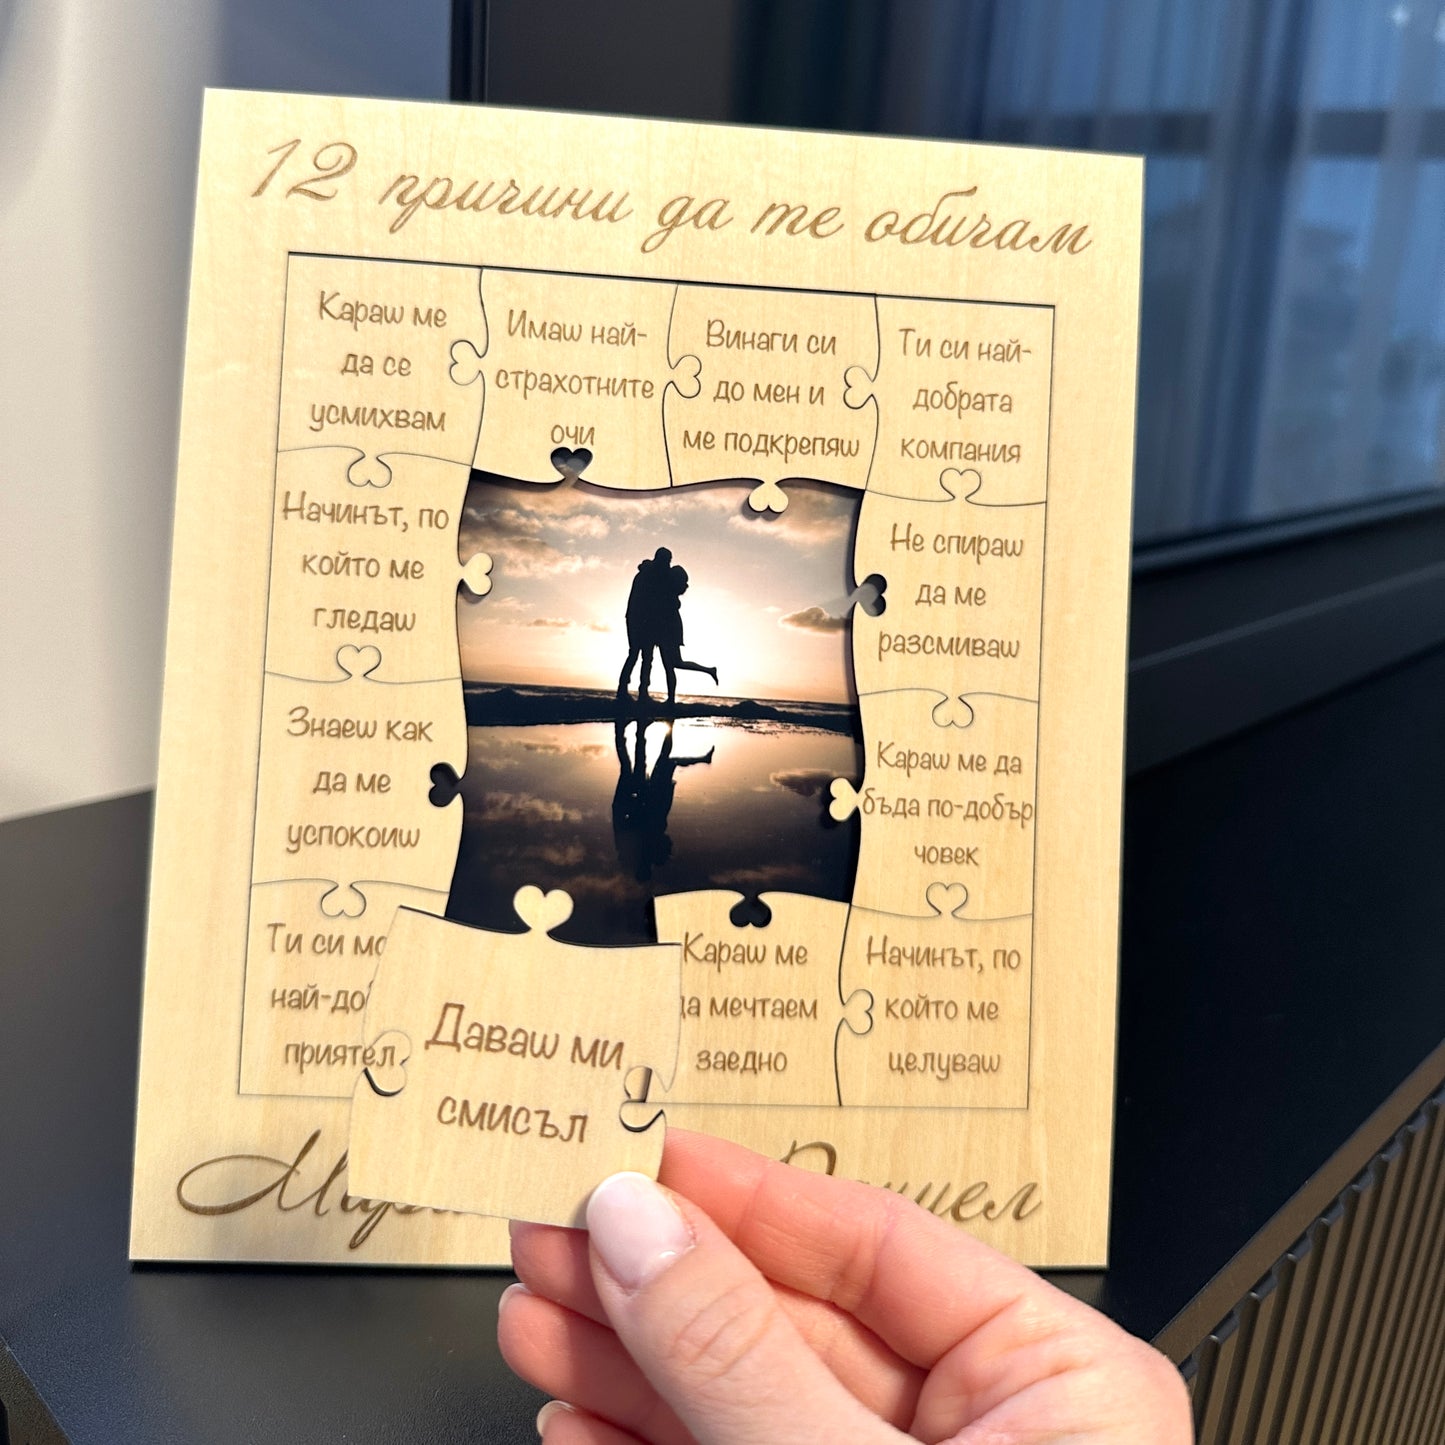 12 причини да те обичам
Караш ме
да се
усмихвам
Имаш най-
страхотните
очи
Винаги си
до мен и
ме подкрепяш
Ти си най-
добрата
компания
Начинът, по
който ме
гледаш
Не спираш
да ме
разсмиваш
Знаеш как
да ме
успокоиш
Караш ме да
бъда по-добър
човек
Ти си
най-
приятел
Даваш ми
смисъл
Караш ме
да мечтаем
заедно
Начинът, по
който ме
целуваш